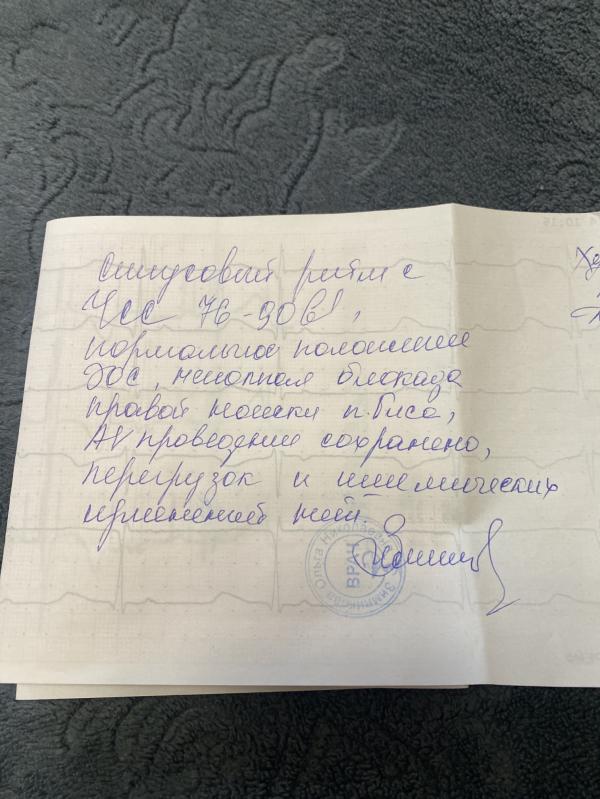 синусовый ритм с
ЧСС 76-90 в 1',
нормальное положение
ЭОС, неполная блокада
правой ножки п. Гиса,
AV проведение сохранено,
перегрузок и ишемических
изменений нет
ВРАЧ
Ольга
10:15